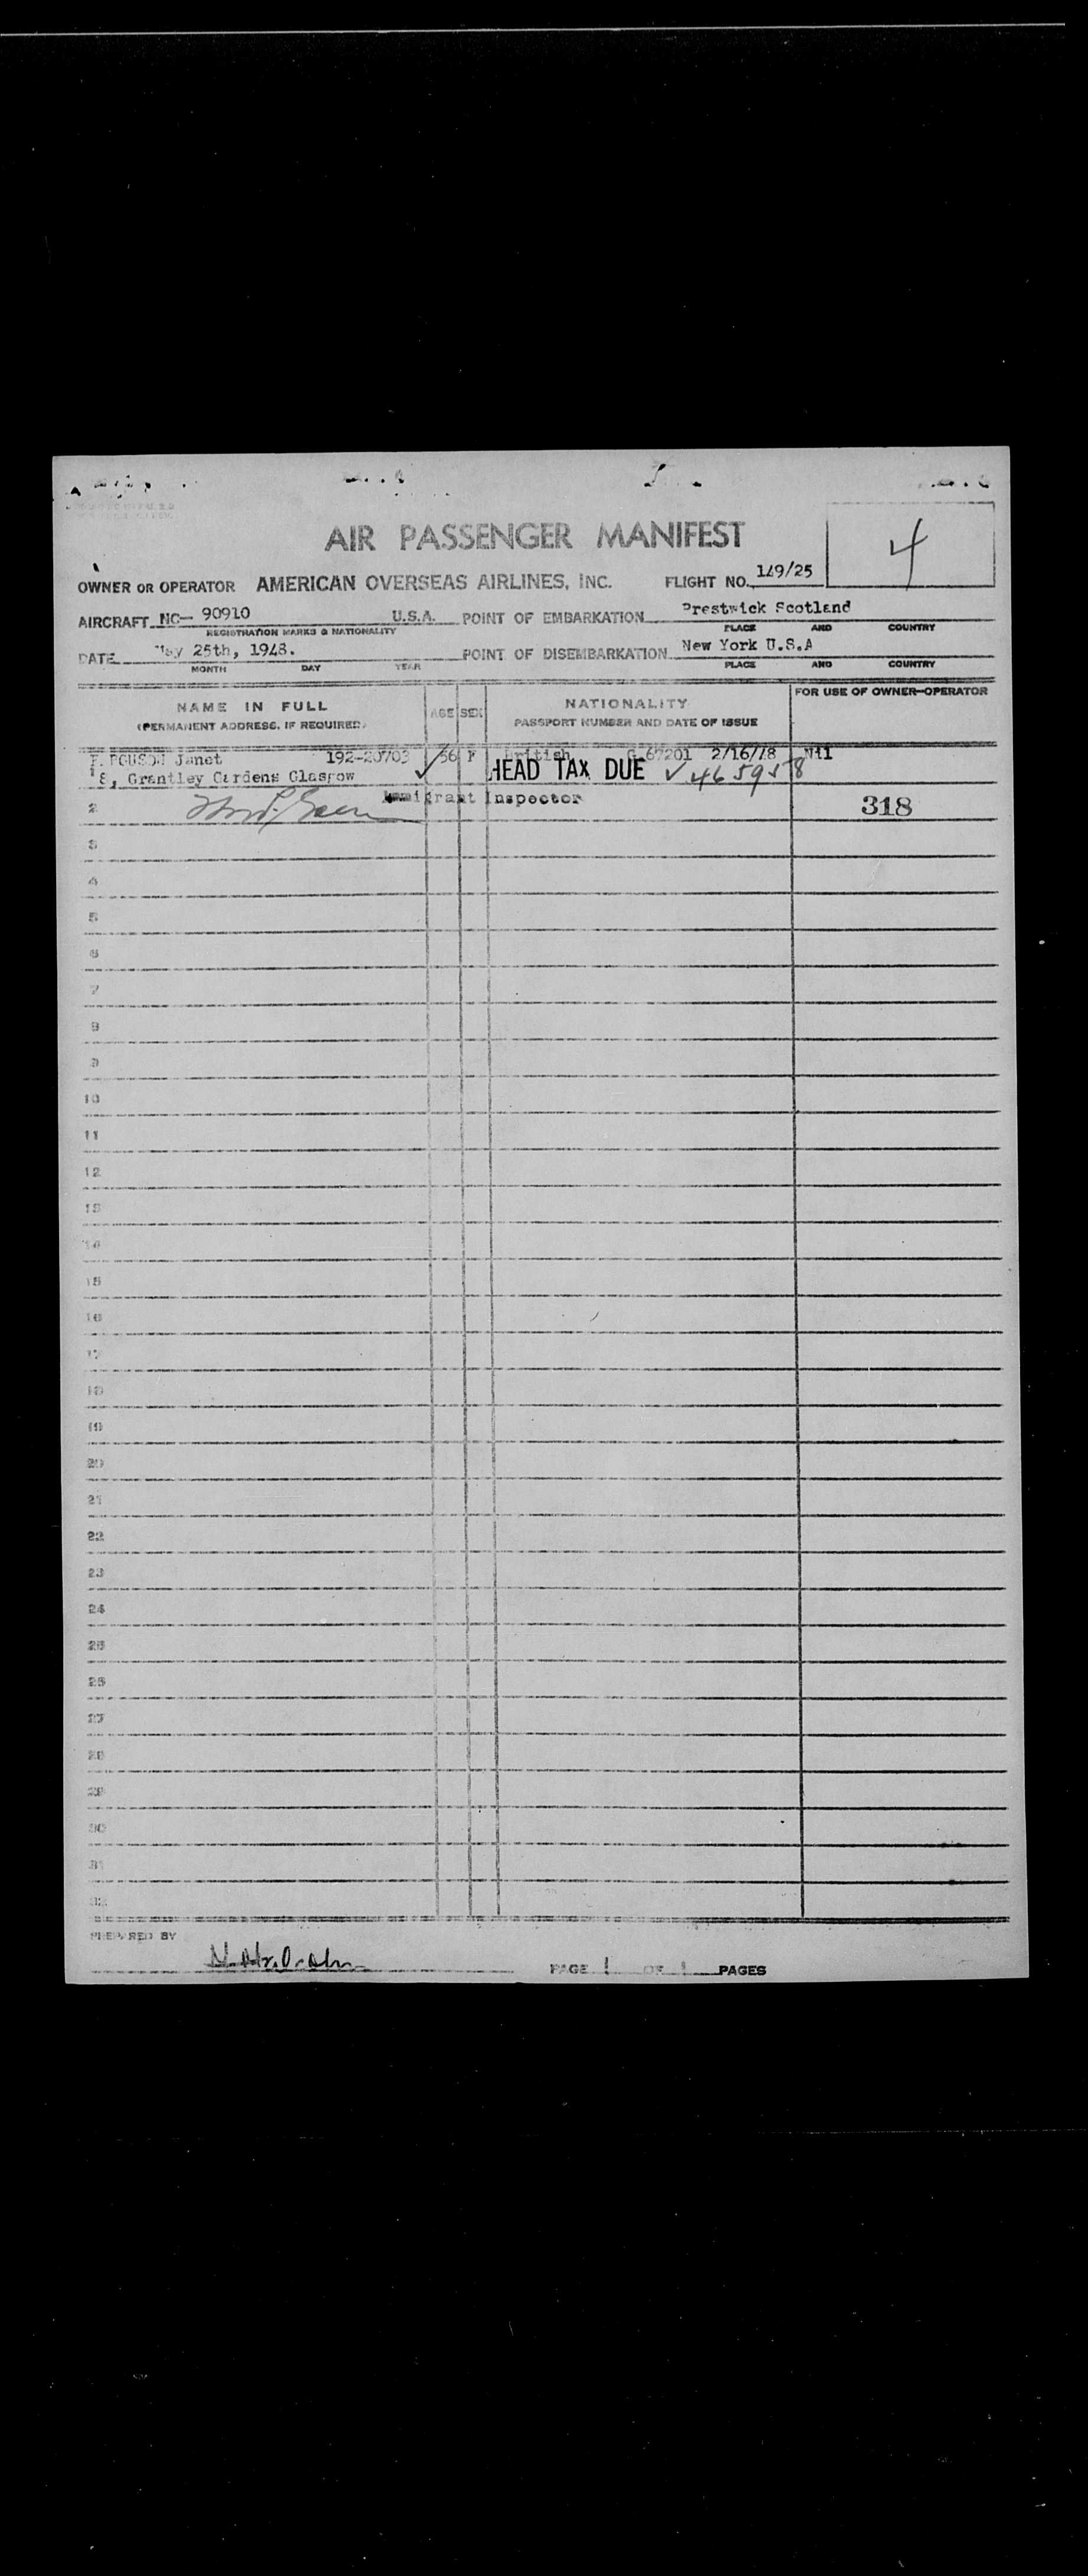 AIR PASSENGER MANIFEST
4
OWNER OR OPERATOR AMERICAN OVERSEAS AIRLINES, INC. FLIGHT NO. 149/25
AIRCRAFT NC— 90910 U.S.A. POINT OF EMBARKATION Prestwick Scotland
REGISTRATION MARKS & NATIONALITY PLACE AND COUNTRY
DATE May 25th, 1948. POINT OF DISEMBARKATION New York U.S.A
MONTH DAY YEAR PLACE AND COUNTRY
NAME IN FULL AGE SEX NATIONALITY FOR USE OF OWNER-OPERATOR
(PERMANENT ADDRESS, IF REQUIRED) PASSPORT NUMBER AND DATE OF ISSUE
FERGUSON Janet 192-20703 56 F British G 67201 2/16/48 Nil
1 8, Grantley Gardens Glasgow HEAD TAX DUE 465958
2 Immigrant Inspector 318
3
4
5
6
7
8
9
10
11
12
13
14
15
16
17
18
19
20
21
22
23
24
25
26
27
28
29
30
31
32
PREPARED BY
PAGE 1 OF 1 PAGES